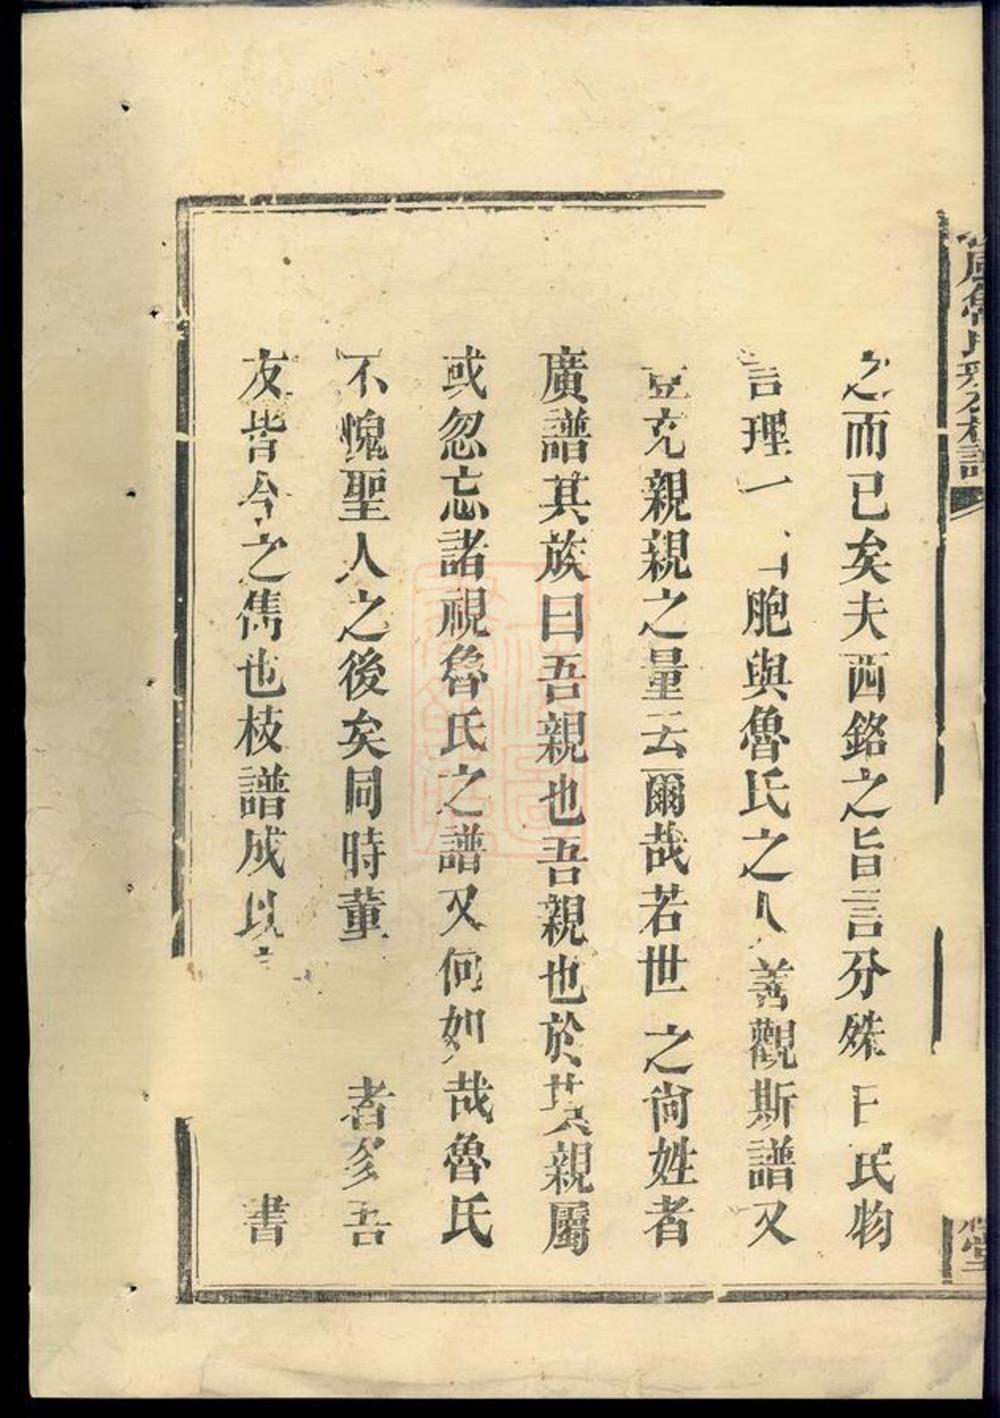 魯氏
堂
之而已矣夫西銘之旨言分殊民物
言理一胞與魯氏之人善觀斯譜又
豈充親親之量云爾哉若世之尚姓者
廣譜其族曰吾親也吾親也於其親屬
或忽忘諸視魯氏之譜又何如哉魯氏
不愧聖人之後矣同時董者多吾
友皆今之雋也枝譜成以書